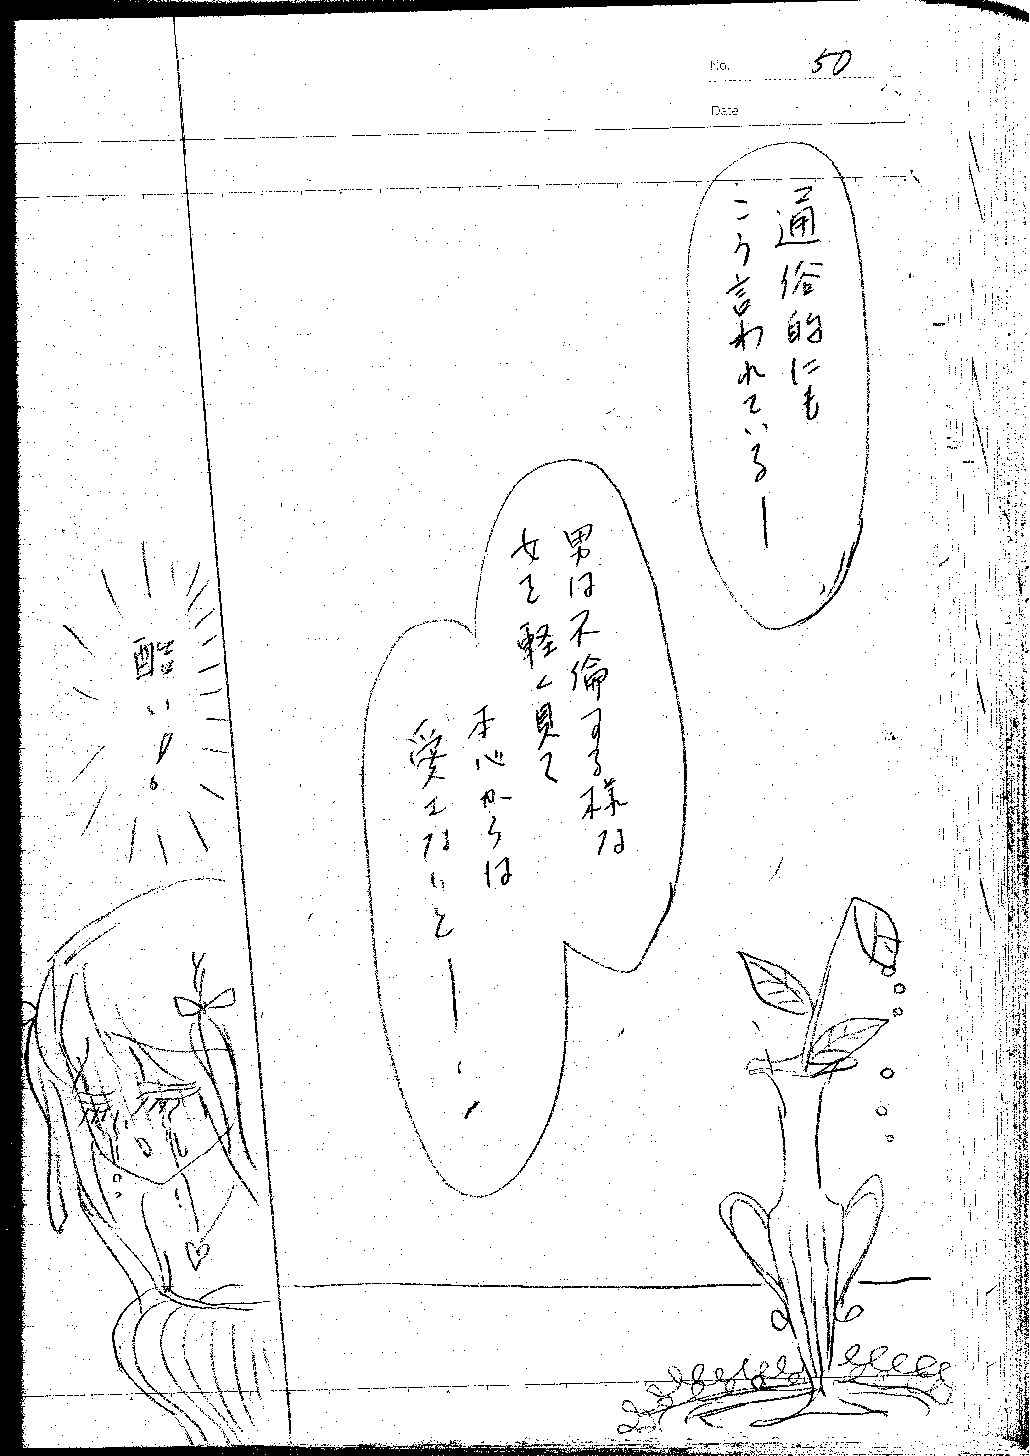 No. 50
Date
通俗的にも
こう言われている―
男は不倫する様な
女を軽く見て
本心からは
愛さないと―!
酷い!。